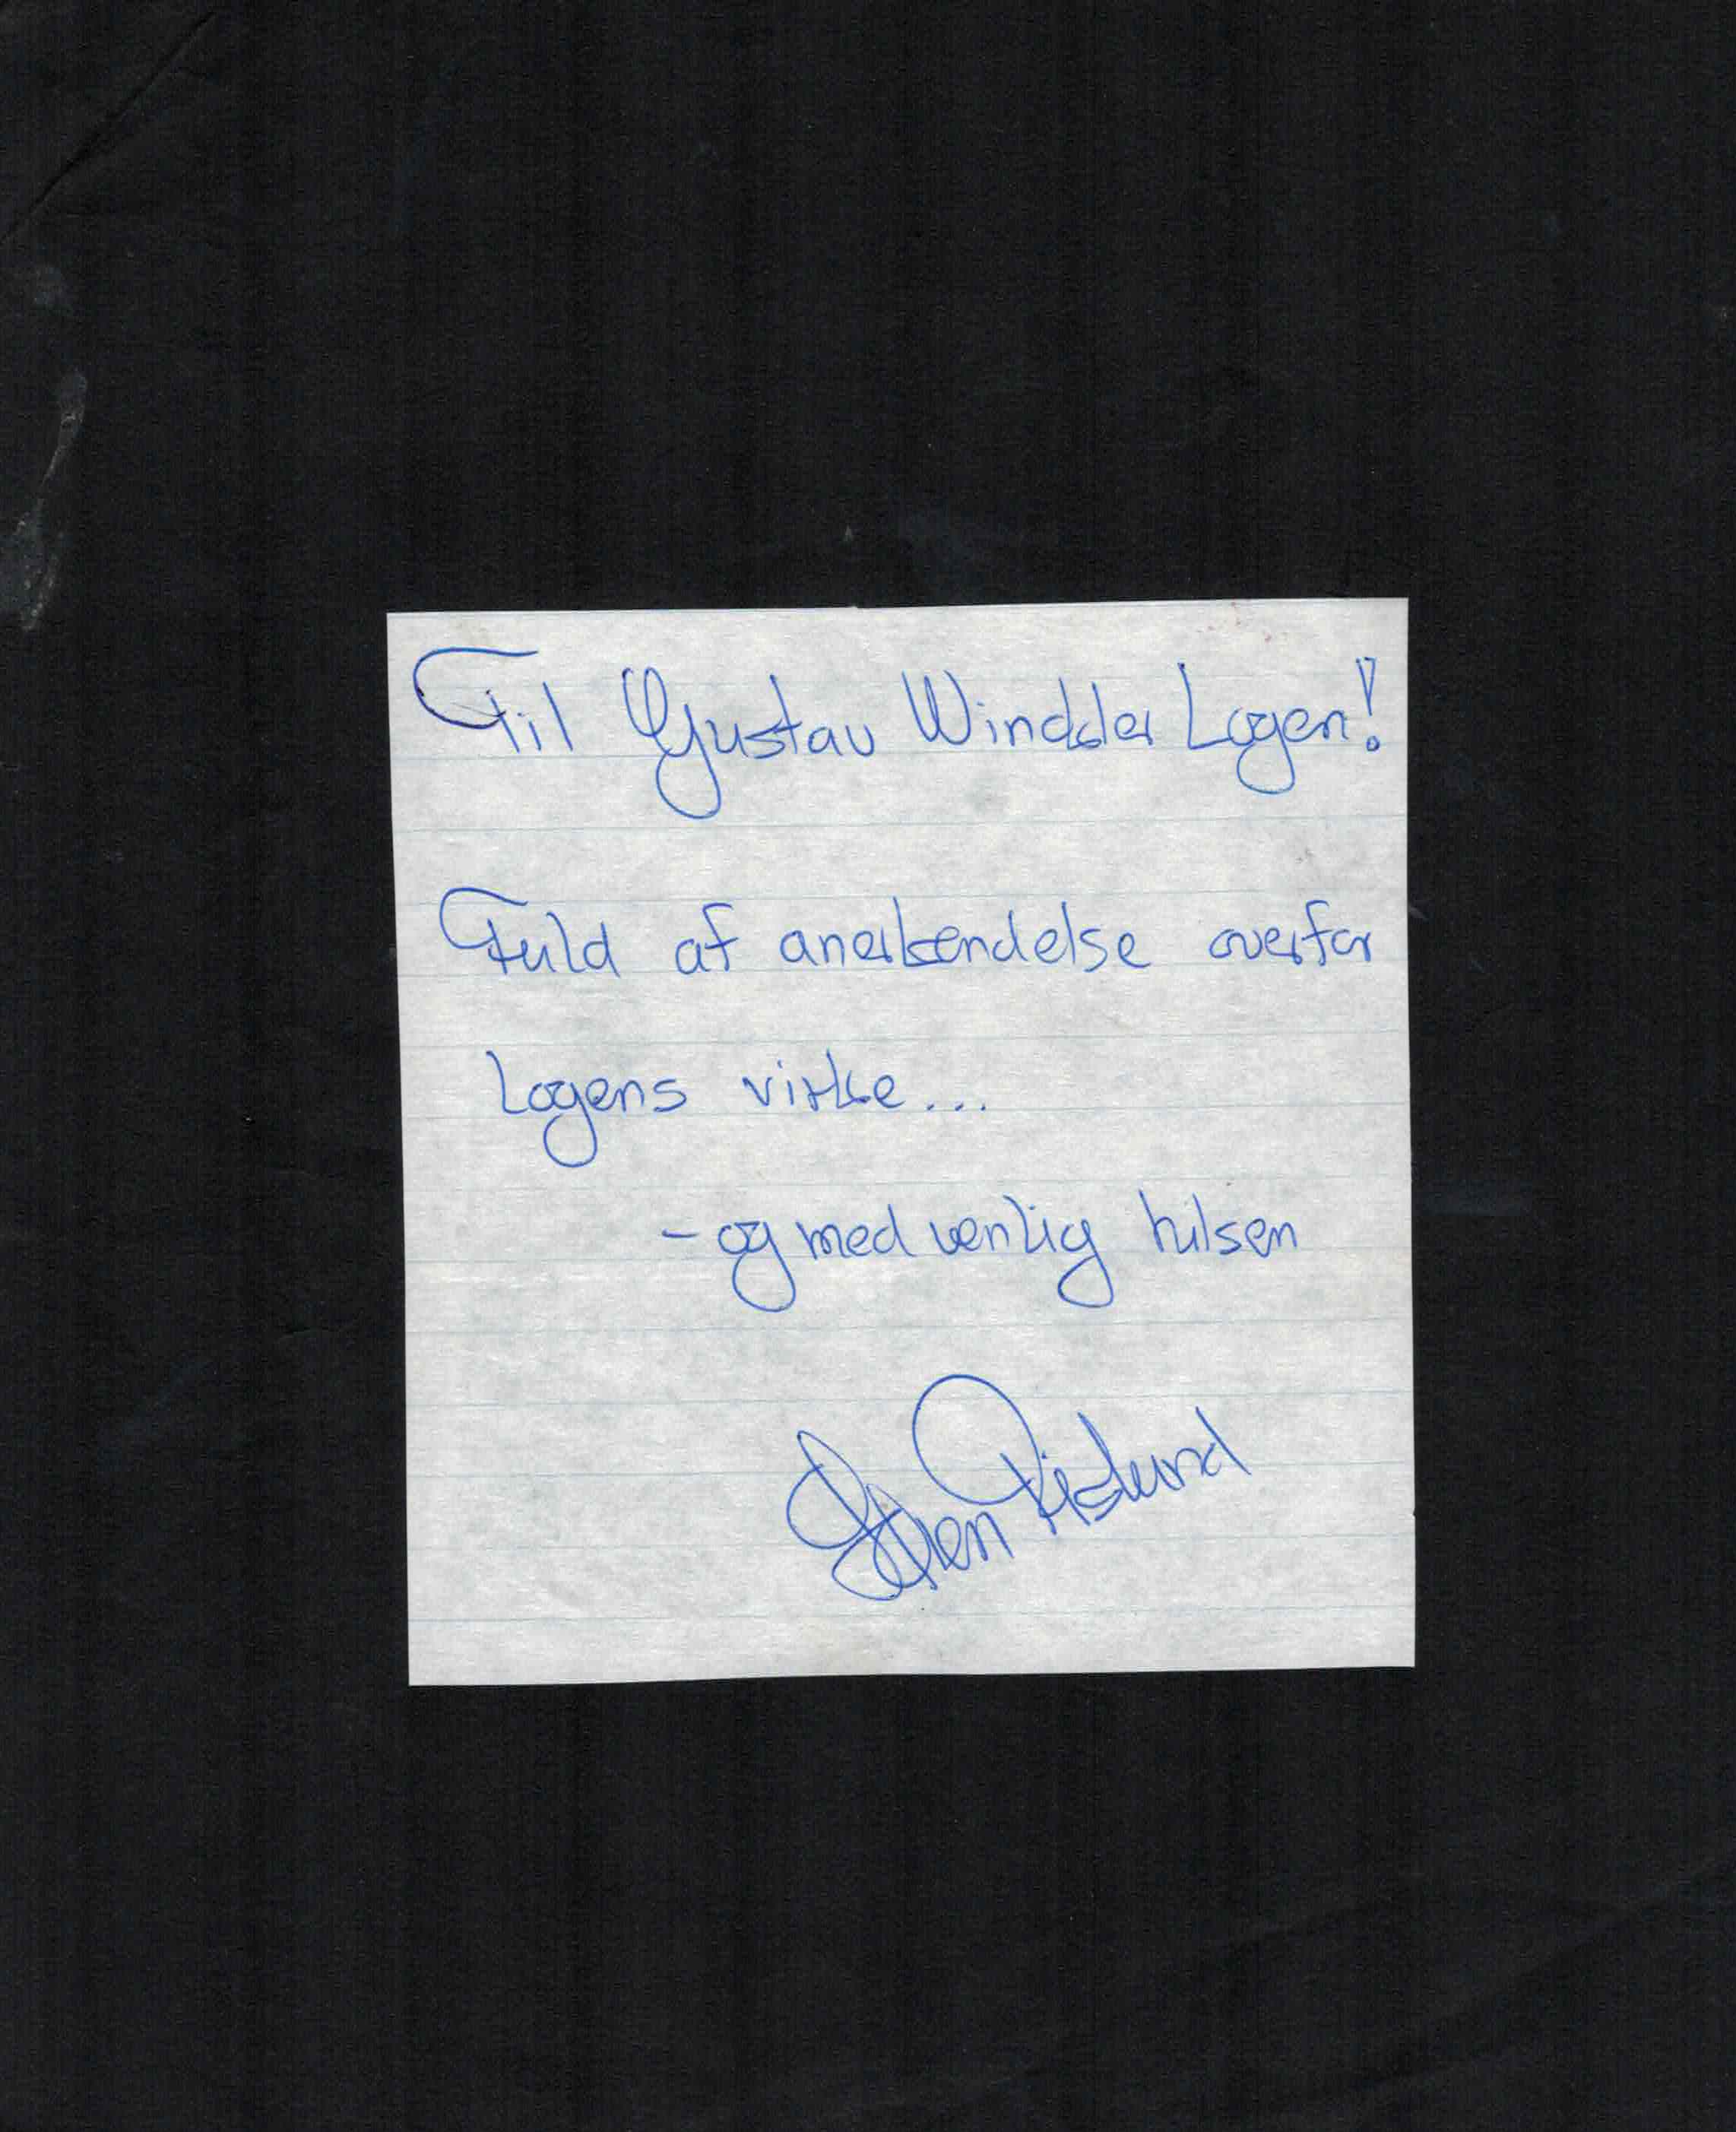 Til Gustav Winckler Logen!
Fuld af anerkendelse overfor
Logens virke...
- og med venlig hilsen